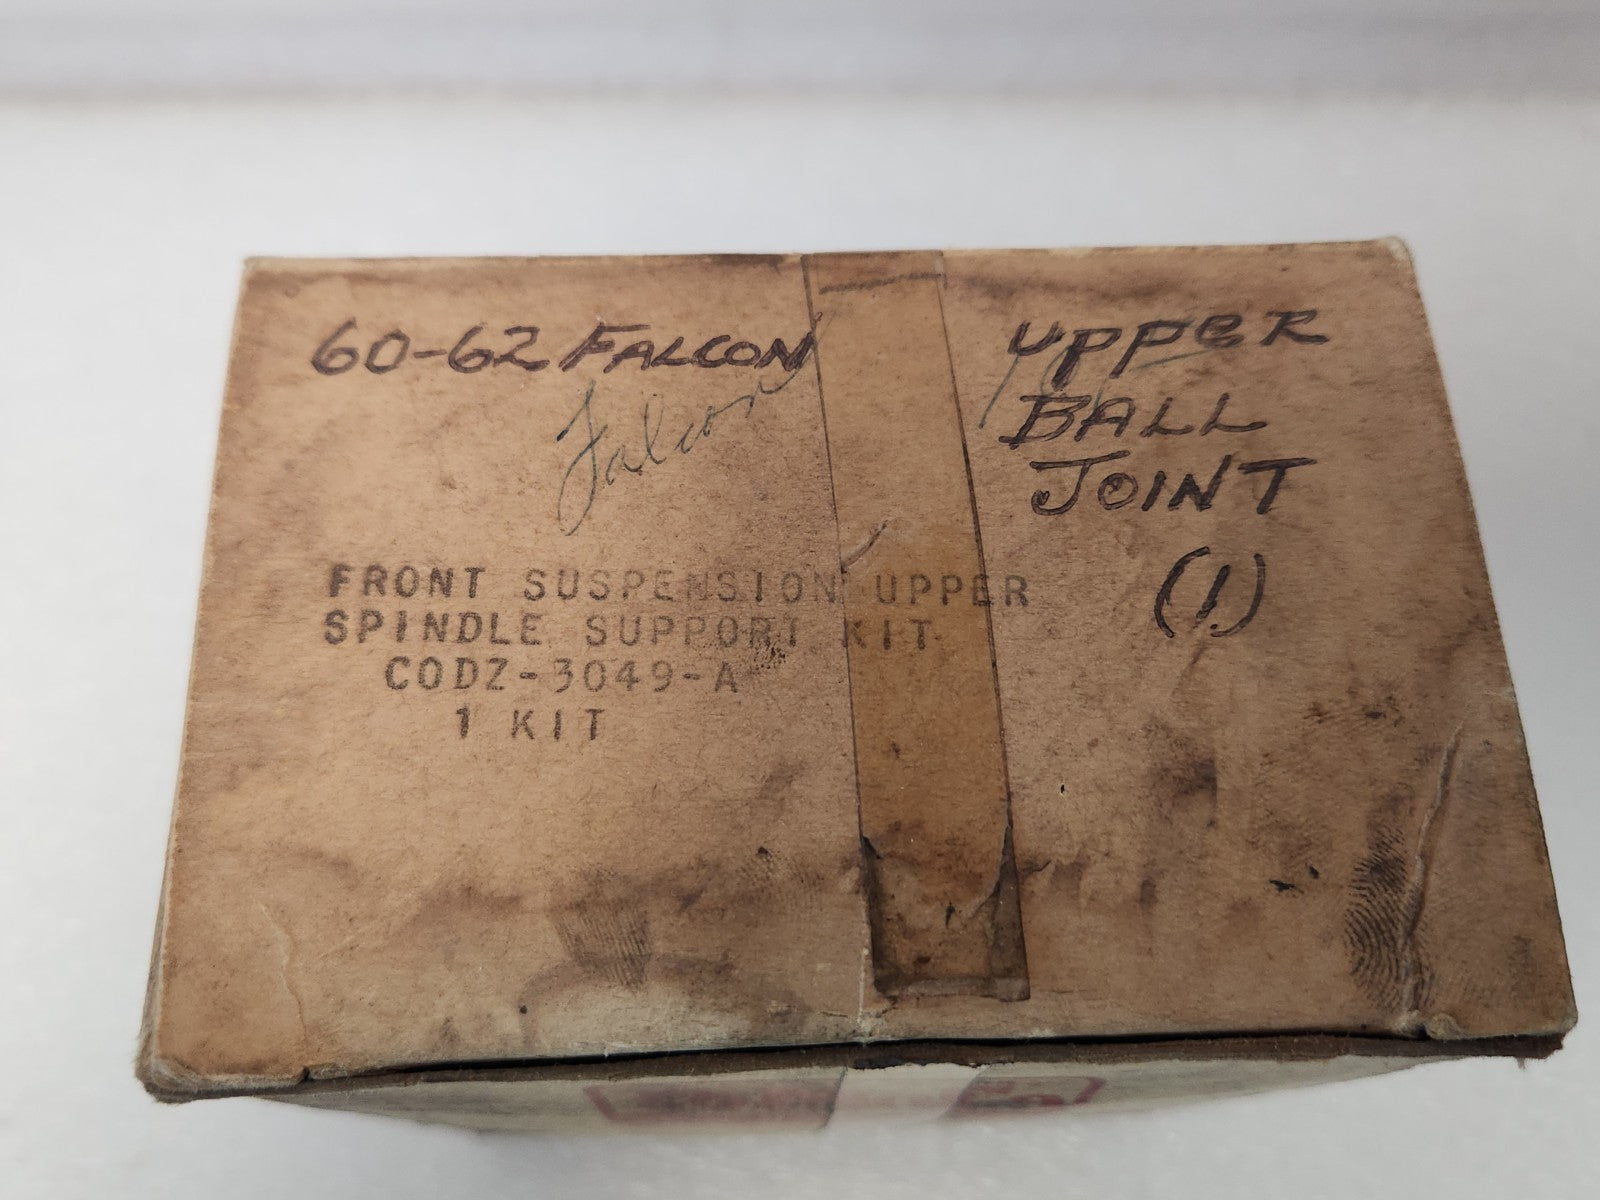 60-62 FALCON
Falcon
UPPER
BALL
JOINT
(1)
FRONT SUSPENSION UPPER
SPINDLE SUPPORT KIT
CODZ-3049-A
1 KIT